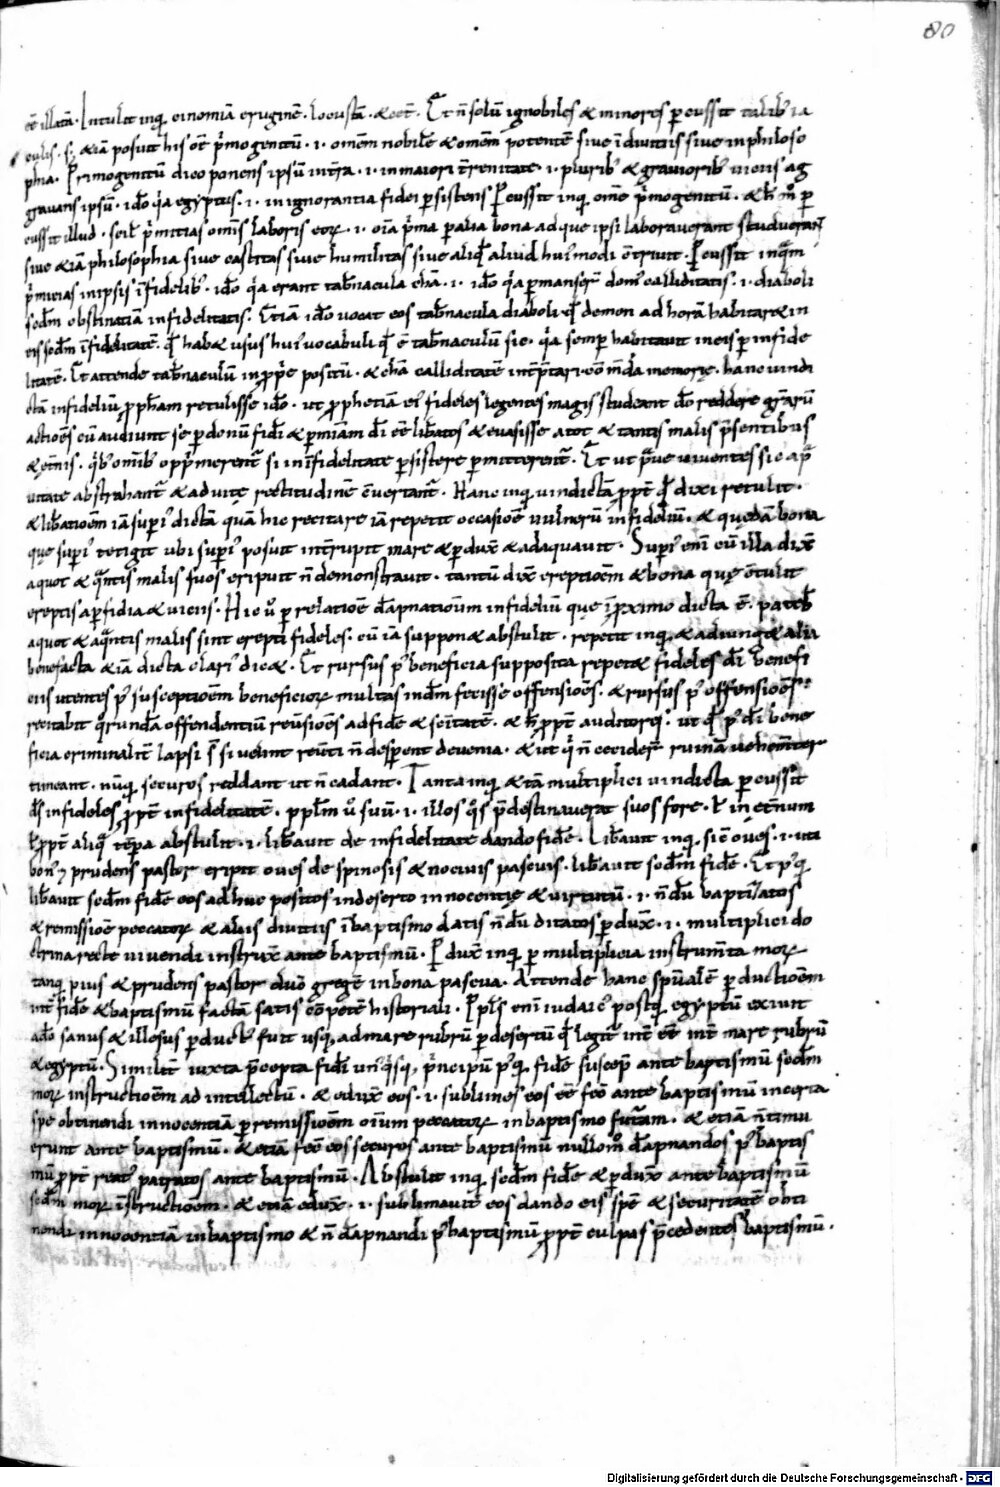 80
eē illatā. Intulit inq; cinomiā eruginē. locustā. & cet̄. Et n̄ solū ignobiles & minores pcussit talib; ia
culis. s; & iā posuit his oē p̄mogenitū. i. omem nobilē & omem potentē sive ī divitiis sive in philoso
phia. Primogenitū dico ponens ipsū in t̄ra. i. in maiori t̄renitate. i. plurib; & graviorib; viciis ag
gravans ipsū. ido q̄a egyptius. i. in ignorantia fidei psistens Pcussit inq; om̄e p̄mogenitū. & h̄ m̊ p
cussit illud. scil; p̄mitias om̄is laboris eoꝝ. i. oīa p̄ma palia bona ad que ipsi laboraverant studuerant
sive & iā philosophia sive castitas sive humilitas sive aliq̄ aliud hui;modi
p̄mitias in ipsis īfidelib;. ido q̄a erant tab̄nacula chā. i. ido q̄a pmanser̄ dom; calliditatis. i. diaboli
sed̄m obstinatiā infidelitatis. Etiā ido vocat eos tab̄nacula diaboli q̄ demon ad horā habitar& in
eis sed̄m īfidelitatē. q̄ hab& usus hui; vocabuli q̄ ē tab̄naculū sic. q̄a semp habitavit in eis p infide
litatē. Et attende tab̄naculū inpp̄e positū. & chā calliditatē int̄p̄tari. memorię. hanc vindi
ctā infideliū pph̄am retulisse ido. ut pphetiā ei; fideles legentes magis studeant do reddere gr̄arū
actiōes cū audiunt se p donū fid̄i & p mīam d̄i eē lib̄atos & evasisse a tot & tantis malis p̄sentibus
& et̄nis. q̄b; omib; opp̄merent̄ si in īfidelitate psistere pmitterent̄. Et ut p̄ve viventes sic a p̄
vitate abstrahant̄ & ad vitę rectitudinē c̄vertant̄. Hanc inq; vindictā ppt̄ q̄ dixi retulit.
& lib̄atioēm iā sup̄i; dictā quā hic recitare iā repetit occasiōe vulnerū infideliū. & quedā bona
quę sup̄i; tetigit ubi sup̄i; posuit int̄rupit mare & pdux̄ & adaquavit. Sup̄i; enī cū illa dix̄
a quot & q̄ntis malis suos eripuit n̄ demonstravit. tantū dix̄ ereptioēm & bona quę c̄tulit
ereptis a pfidia & viciis. Hic v̊ p relatiōe dāpnationum infideliū que īp̄ximo dicta ē. pateb̄
a quot & a q̄ntis malis sint erepti fideles. cū iā suppon& abstulit. repetit inq; & adiung& alia
benefacta & iā dicta clari; dic&. Et rursus p; beneficia supposita repet& fideles d̄i benefi
ciis utentes p; susceptioēm beneficioꝝ multas ind̄m fecisse offensioēs. & rursus p; offensioēs
recitabit q̄rundā offendentiū rev̄sioēs ad fidē & scītatē. & h̄ ppt̄ auditores. ut q̄ p; d̄i bene
ficia criminalit̄ lapsi s̄ si velint rev̄ti n̄ desp̄ent de venia. & ut q̄ n̄ cecider̄ ruinā vehem̄ter
timeant. nūq; securos reddant ut n̄ cadant. Tanta inq; & tā multiplici vindicta pcussit
d̄s infideles ppt̄ infidelitatē. pp̄lm v̊ suū. i. illos q̊s p̄destinaverat suos fore. ł in et̄num
ł ppt̄ aliq̄ t̄pa abstulit. i. lib̄avit de infidelitate dando fidē. Lib̄avit inq; sic oves. i. uti
bon; & prudens pastor eripit oves de spinosis & nocivis pascuis. lib̄avit sed̄m fidē. Et p;q;
lib̄avit sed̄m fidē eos ad huc positos in deserto innocentię & virtutū. i. n̄dū baptizatos
& remissiōe peccatoꝝ & aliis divitiis ī baptismo datis n̄dū ditatos pdux̄. i. multiplici do
ctrina recte vivendi instrux̄ ante baptismū. Pdux̄ inq; p multiplicia instrum̄ta moꝝ
tanq; pius & prudens pastor duc̄ gregē in bona pascua. Attende hanc sp̄ualē pductioēm
int̄ fidē & baptismū factā satis c̄petē historiali. Pp̄ls enī iudaic; postq; egyptū exiunt
ado sanus & illesus pduct; fuit usq; ad mare rubrū p desertū q̄ legit̄ int̄ eē int̄ mare rubrū
& egyptū. Similit̄ iuxta p̄cepta fid̄i un;q̄sq; p̄ncipiū p;q; fidē suscep̄ ante baptismū sed̄m
moꝝ instructioēm ad intellectū. & edux̄ eos. i. sublimes eos eē fec̄ ante baptismū in certa
spe obtinendi innocentiā p remissioēm oīum peccatoꝝ in baptismo futuram. & etiā n̄ timu
erunt ante baptismū. & etiā fec̄ eos securos ante baptismū nullom̊ dāpnandos p; baptis
mū ppt̄ reat; patratos ante baptismū. Abstulit inq; sed̄m fidē & pdux̄ ante baptismū
sed̄m moꝝ īstructioēm. & etiā edux̄. i. sublimavit eos dando eis spē & securitatē obti
nendi innocentiā in baptismo & n̄ dāpnandi p; baptismū ppt̄ culpas p̄cedentes baptismū.
Digitalisierung gefördert durch die Deutsche Forschungsgemeinschaft - DFG